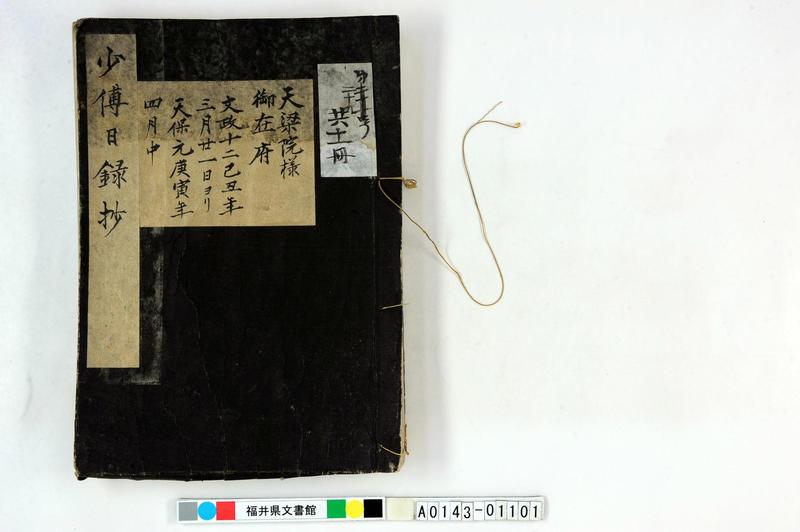 共十一冊
天梁院様
御在府
文政十二己丑年
三月廿一日ヨリ
天保元庚寅年
四月中
少傅日録抄
福井県文書館
A0143-01101